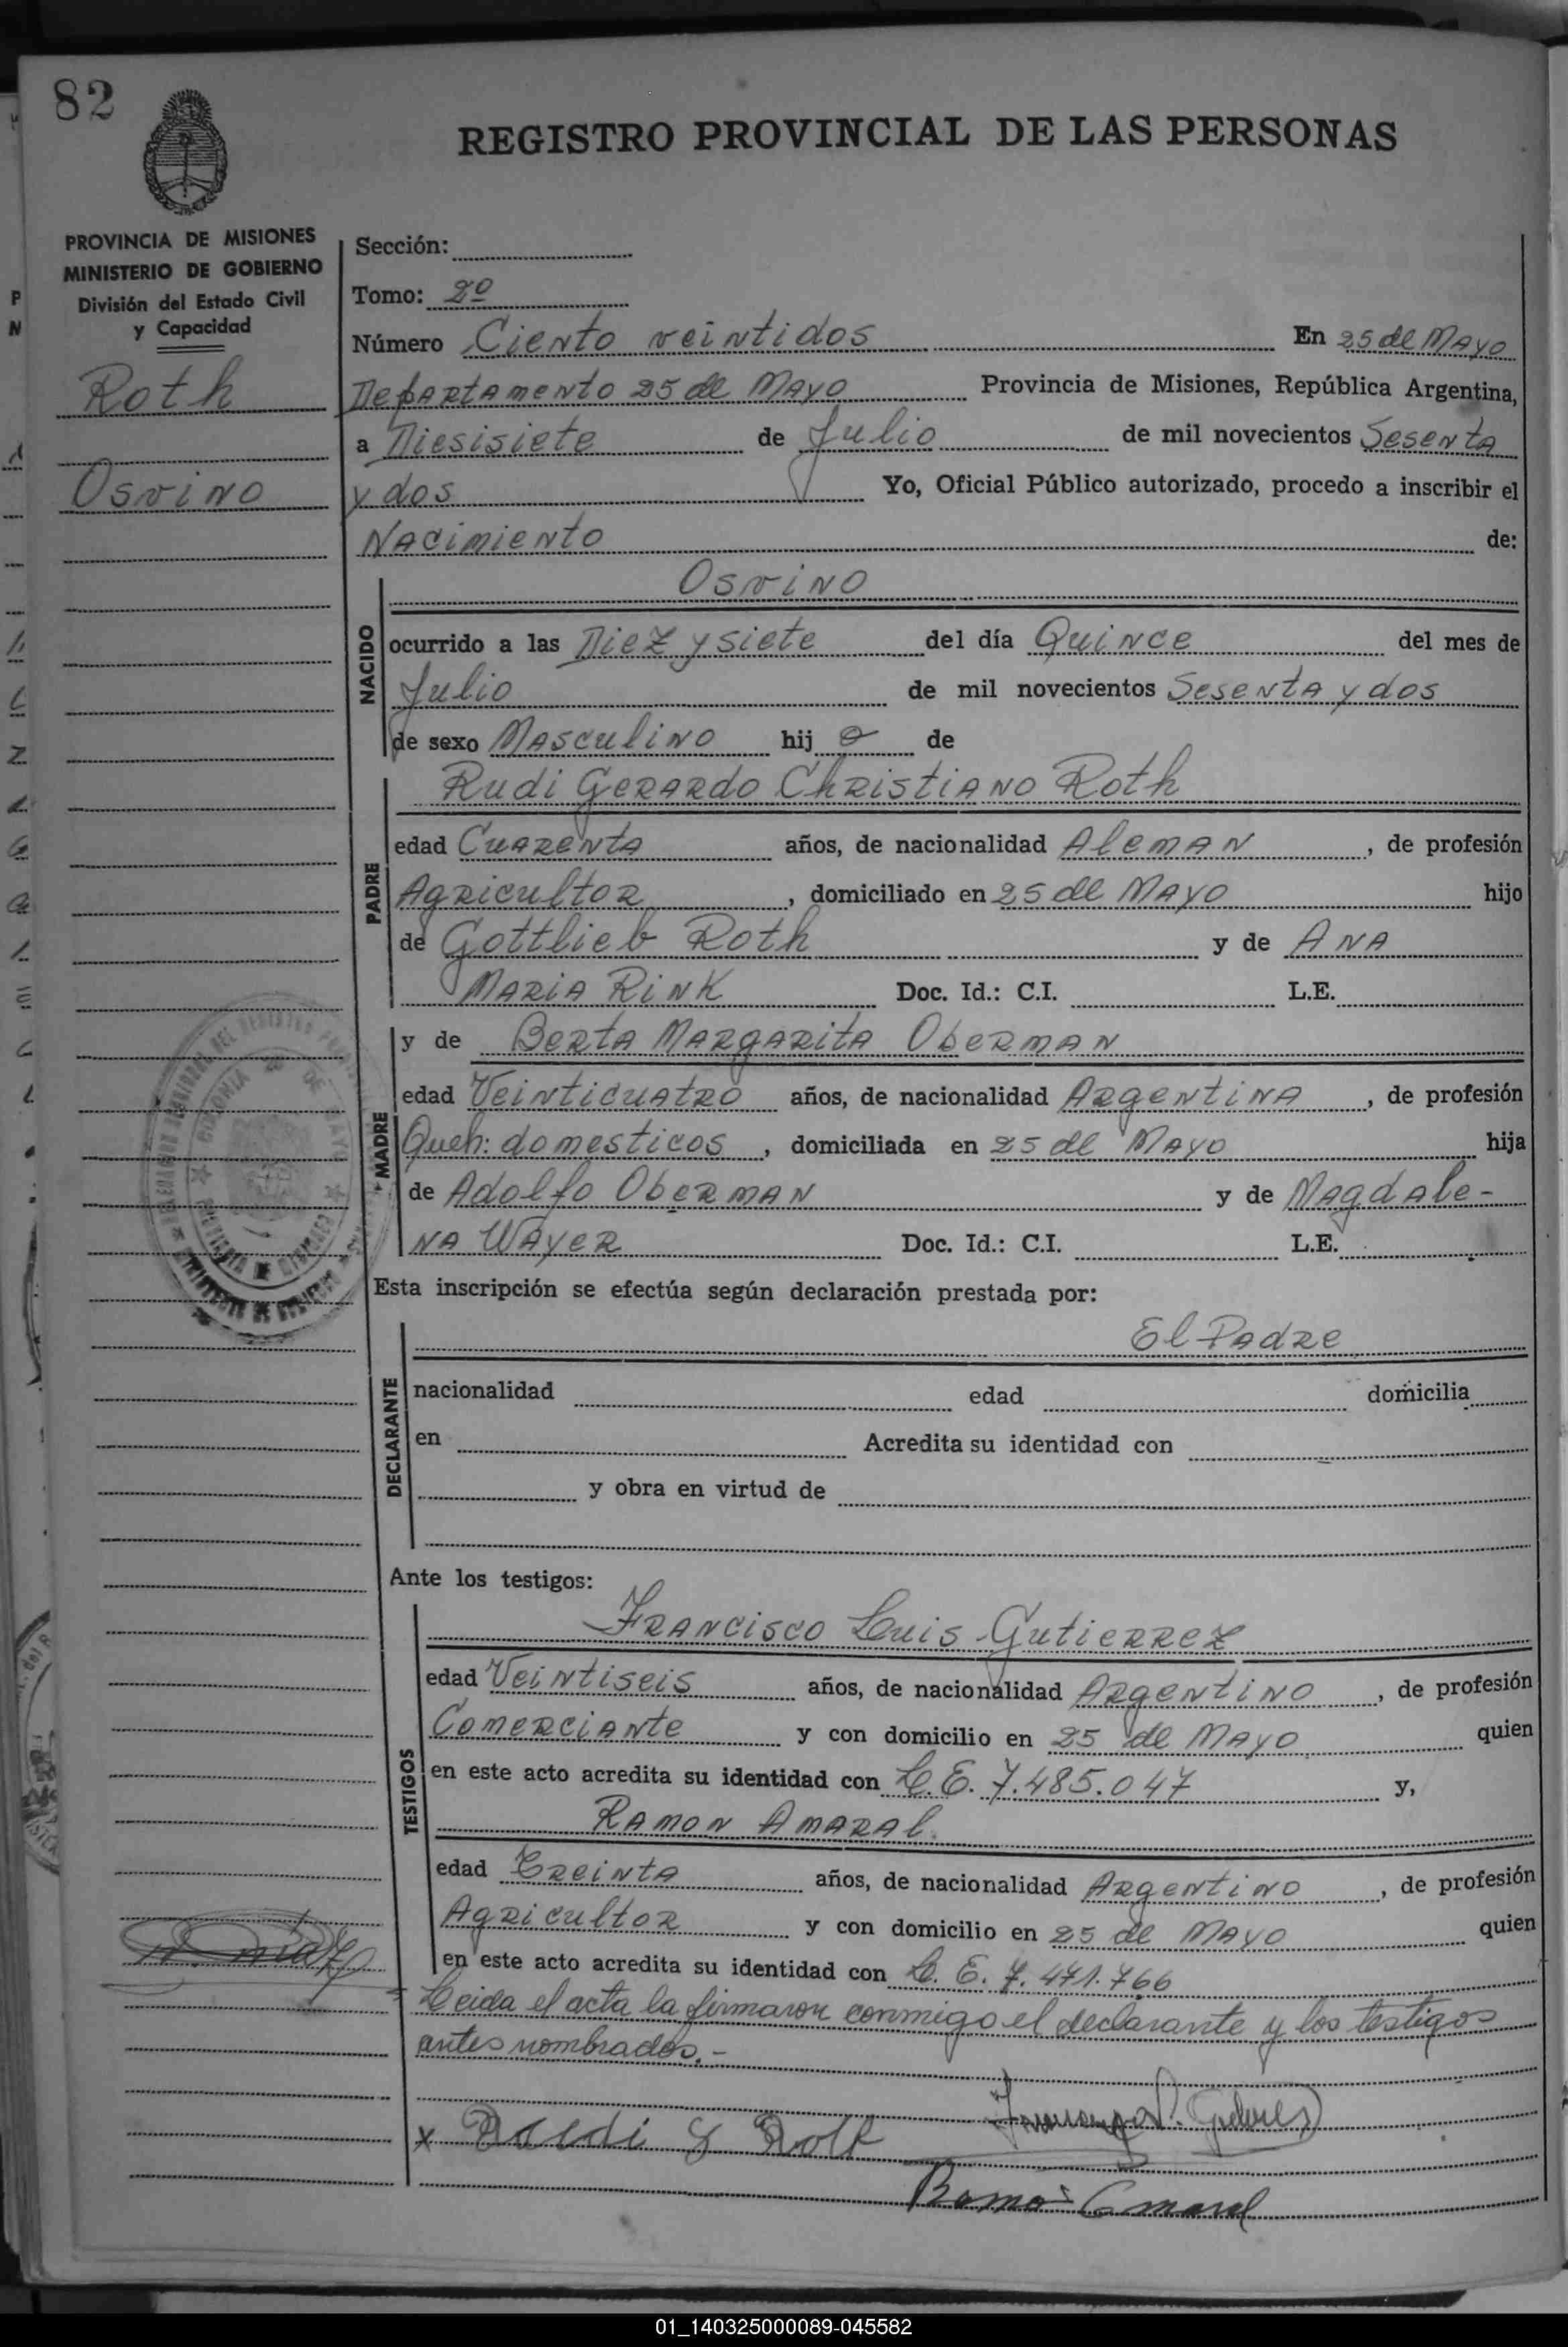 82
REGISTRO PROVINCIAL DE LAS PERSONAS
PROVINCIA DE MISIONES
MINISTERIO DE GOBIERNO
División del Estado Civil
y Capacidad
Roth
Osvino
Sección:
Tomo: 2º
Número Ciento veintidos En 25 de Mayo
Departamento 25 de Mayo Provincia de Misiones, República Argentina,
a Diesisiete de Julio de mil novecientos Sesenta
y dos Yo, Oficial Público autorizado, procedo a inscribir el
Nacimiento de:
NACIDO
Osvino
ocurrido a las Diez y siete del día Quince del mes de
Julio de mil novecientos Sesenta y dos
de sexo Masculino hij o de
PADRE
Rudi Gerardo Christiano Roth
edad Cuarenta años, de nacionalidad Aleman, de profesión
Agricultor, domiciliado en 25 de Mayo hijo
de Gottlieb Roth y de Ana
Maria Rink Doc. Id.: C.I. L.E.
MADRE
y de Berta Margarita Oberman
edad Veinticuatro años, de nacionalidad Argentina, de profesión
Queh: domesticos, domiciliada en 25 de Mayo hija
de Adolfo Oberman y de Magdale-
na Wayer Doc. Id.: C.I. L.E.
Esta inscripción se efectúa según declaración prestada por:
DECLARANTE
El Padre
nacionalidad edad domicilia
en Acredita su identidad con
y obra en virtud de
Ante los testigos:
TESTIGOS
Francisco Luis Gutierrez
edad Veintiseis años, de nacionalidad Argentino, de profesión
Comerciante y con domicilio en 25 de Mayo quien
en este acto acredita su identidad con L.E. 7.485.047 y,
Ramon Amaral
edad Treinta años, de nacionalidad Argentino, de profesión
Agricultor y con domicilio en 25 de Mayo quien
en este acto acredita su identidad con L. E. 7.471.766
Leida el acta la firmaron conmigo el declarante y los testigos
antes nombrados.-
01_140325000089-045582